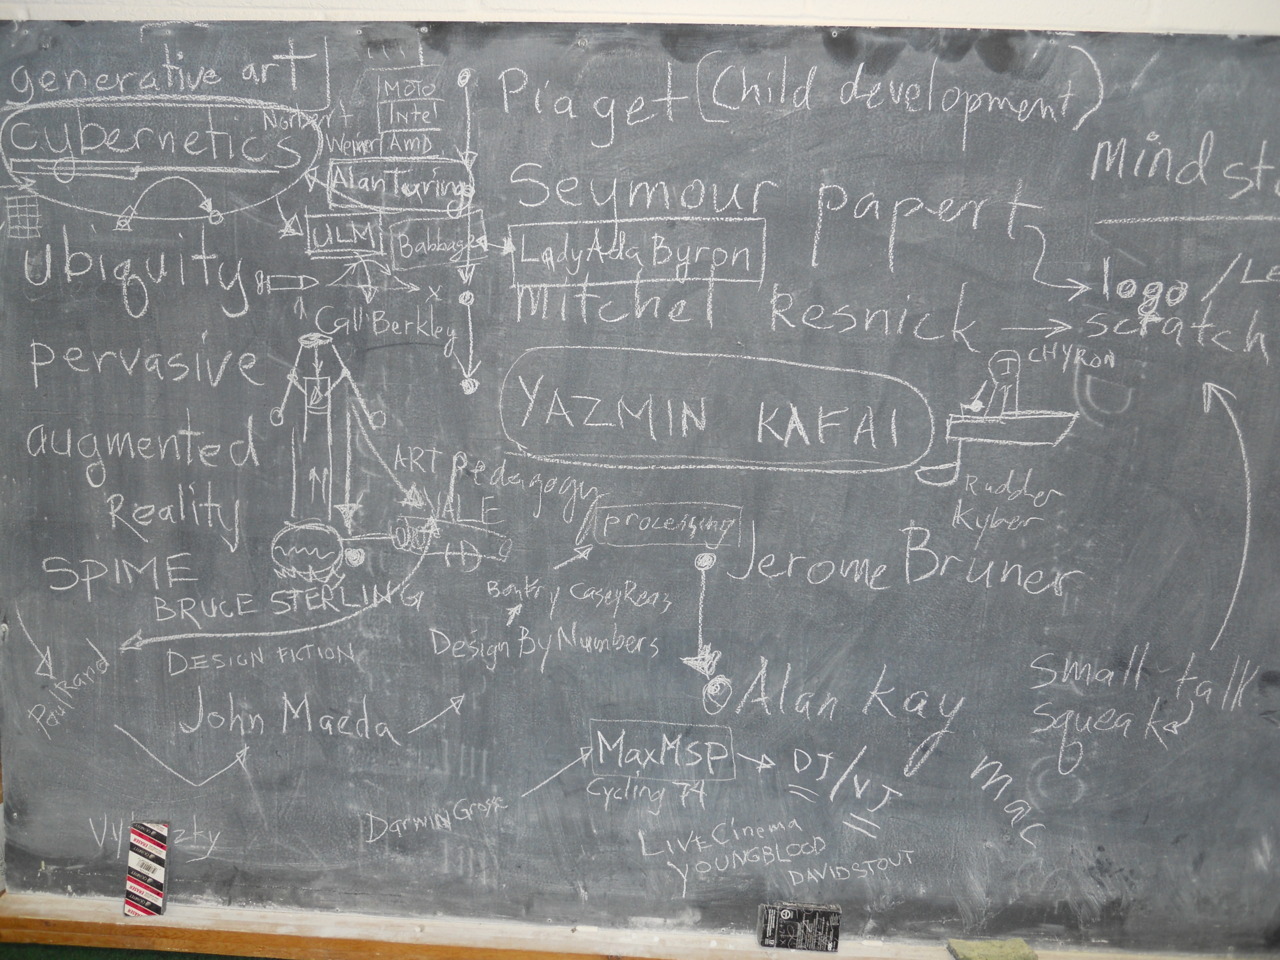 generative art
cybernetics
Norbert
Weiner
MOTO
Intel
AMD
Alan Turing
ULM
Babbage
Lady Ada Byron
Piaget (Child development)
Seymour papert
Mindst
logo / Le
Mitchel Resnick → scratch
ubiquity
x
Call Berkley
pervasive
YAZMIN KAFAI
CHYRON
augmented
Reality
ART pedagogy
VALE
processing
Rudder
Kyber
Jerome Bruner
SPIME
BRUCE STERLING
DESIGN FICTION
Casey Reas
Design By Numbers
Paul Rand
John Maeda
Alan Kay
small-talk
squeak
MaxMSP → DJ/VJ
Cycling 74
mac
Darwin Grosse
LIVE Cinema
YOUNGBLOOD
DAVID STOUT